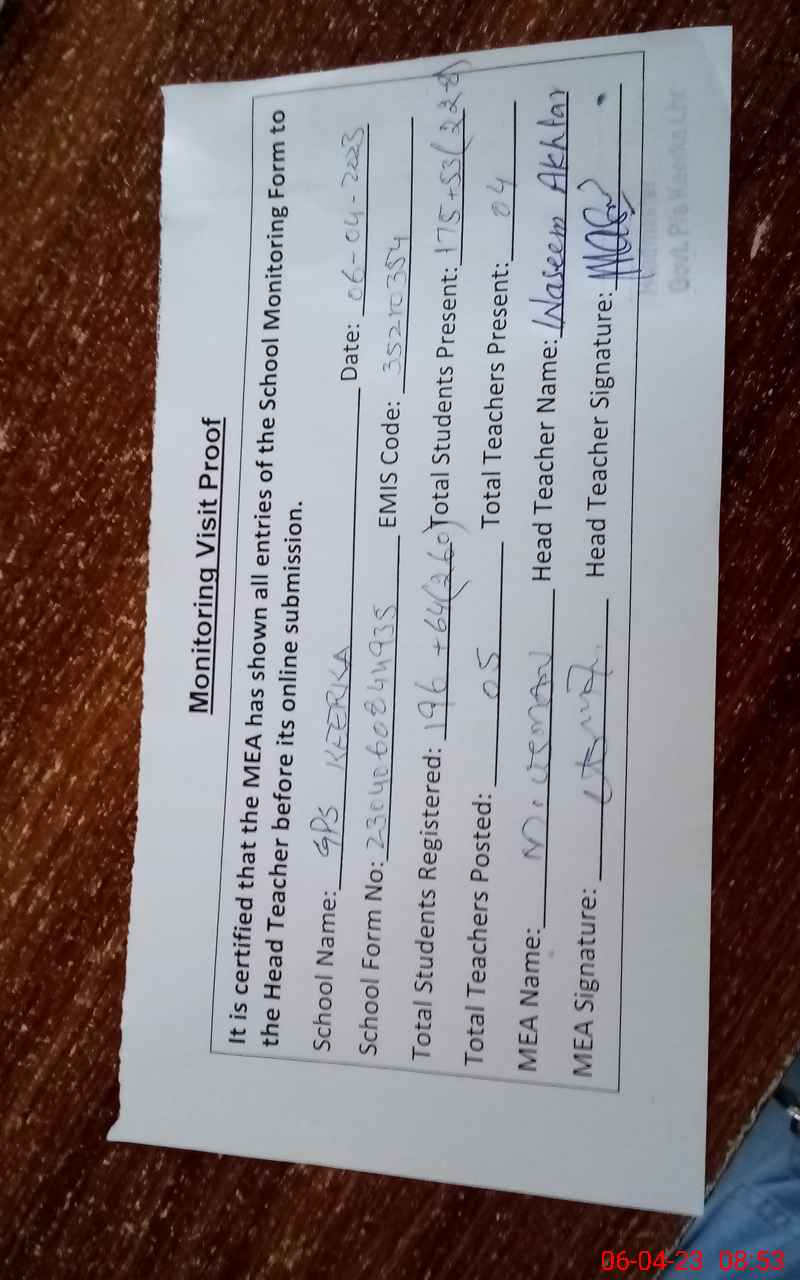 Monitoring Visit Proof
It is certified that the MEA has shown all entries of the School Monitoring Form to
the Head Teacher before its online submission.
School Name: GPS KEERKA Date: 06-04-2023
School Form No: 2304060844935 EMIS Code: 35210354
Total Students Registered: 196 + 64(260) Total Students Present: 175+53(228)
Total Teachers Posted: 05 Total Teachers Present: 04
MEA Name: M. USMAN Head Teacher Name: Waseem Akhtar
MEA Signature: Head Teacher Signature:
06-04-23 08:53